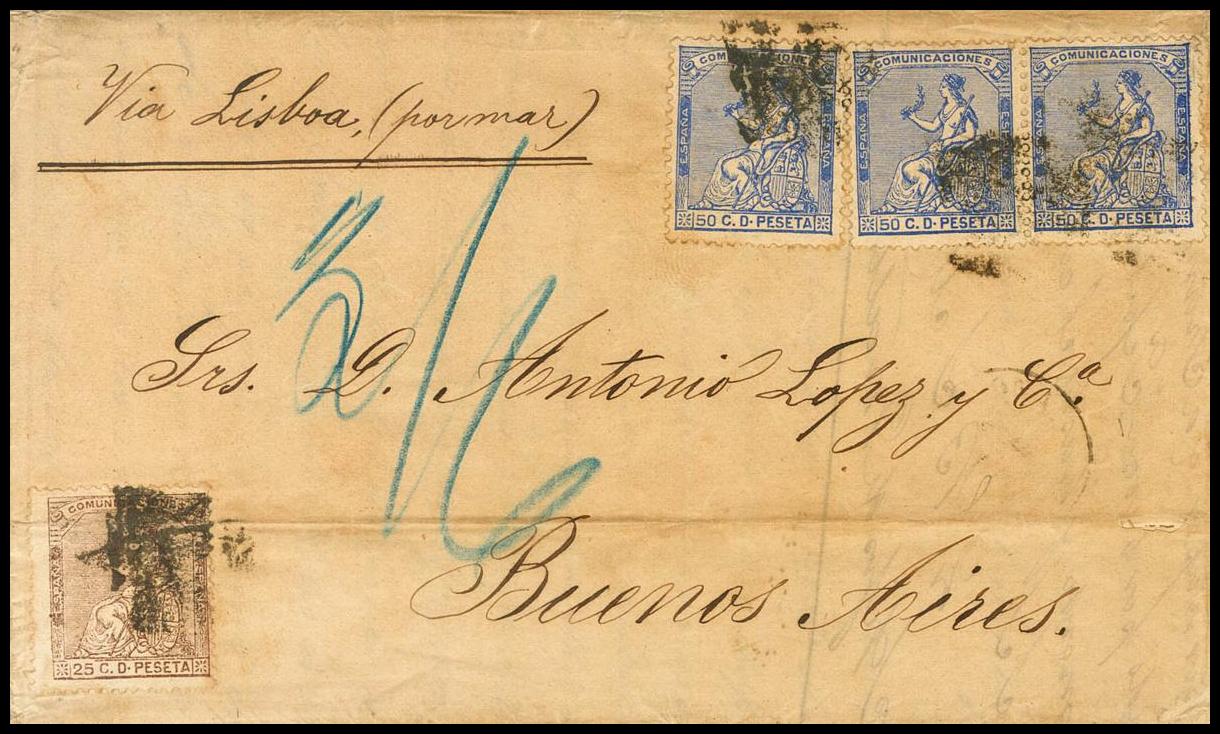 Via Lisboa, (por mar)
COMUNICACIONES
ESPAÑA
50 C. D. PESETA
COMUNICACIONES
ESPAÑA
ESPAÑA
50 C. D. PESETA
COMUNICACIONES
ESPAÑA
50 C. D. PESETA
Srs. D. Antonio Lopez y Cª
Buenos Aires.
COMUNICACIONES
ESPAÑA
25 C. D. PESETA